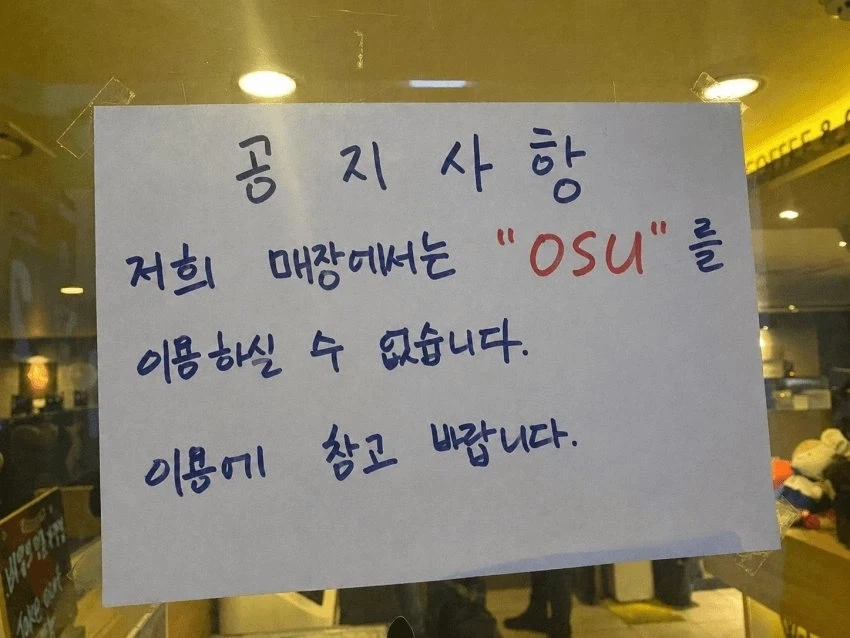 공지사항
저희 매장에서는 "OSU"를
이용하실 수 없습니다.
이용에 참고 바랍니다.
COFFEE &
Take out